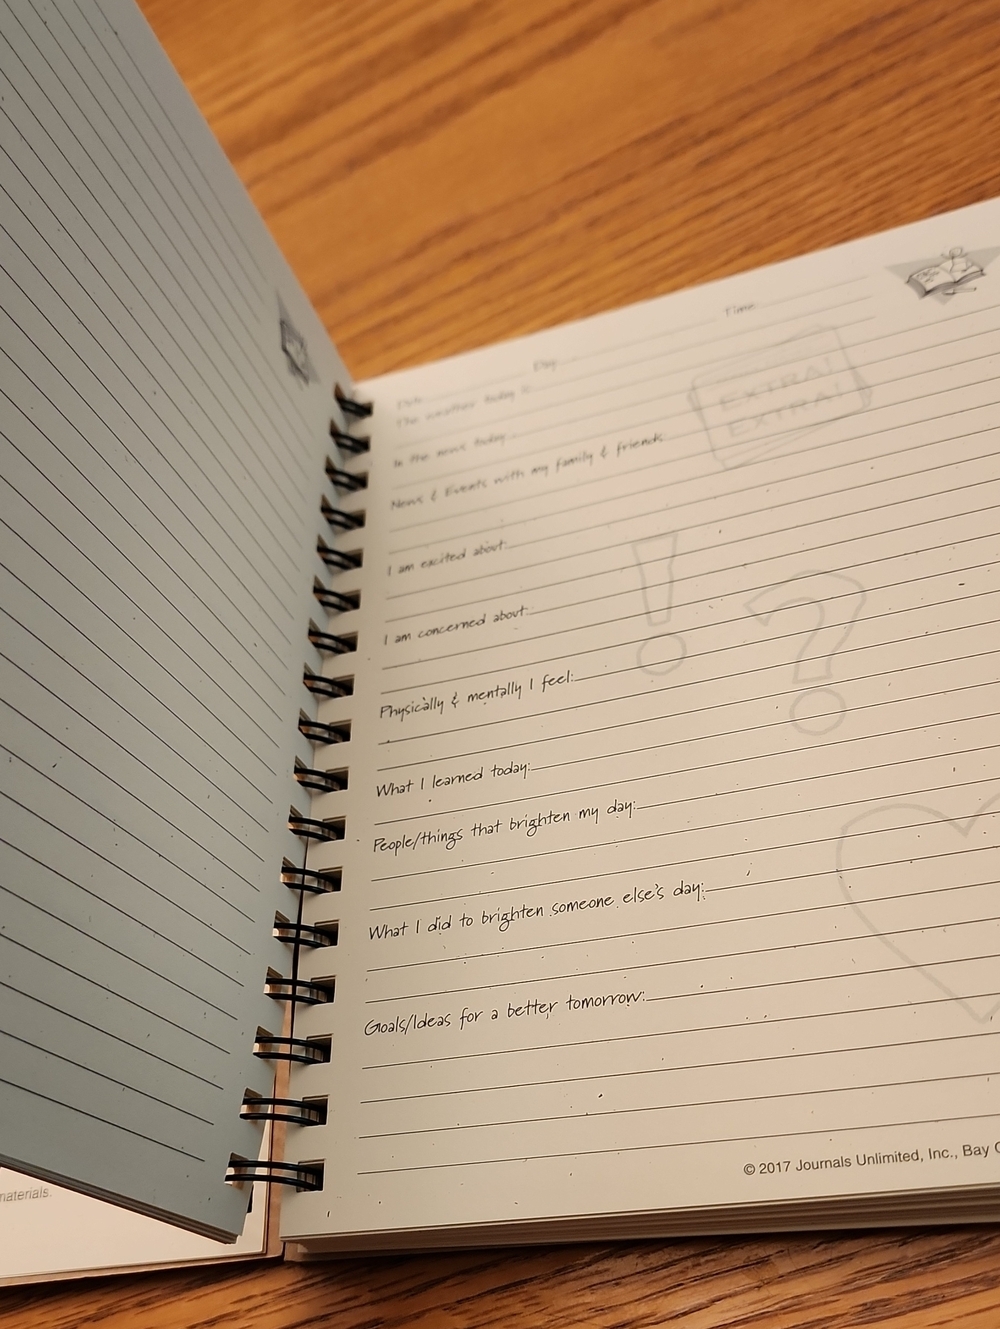 materials.
Date Day Time
The weather today is:
In the news today:
EXTRA!
EXTRA!
News & Events with my family & friends:
I am excited about:
I am concerned about:
!
?
Physically & mentally I feel:
What I learned today:
People/things that brighten my day:
What I did to brighten someone else's day:
Goals/Ideas for a better tomorrow:
© 2017 Journals Unlimited, Inc., Bay